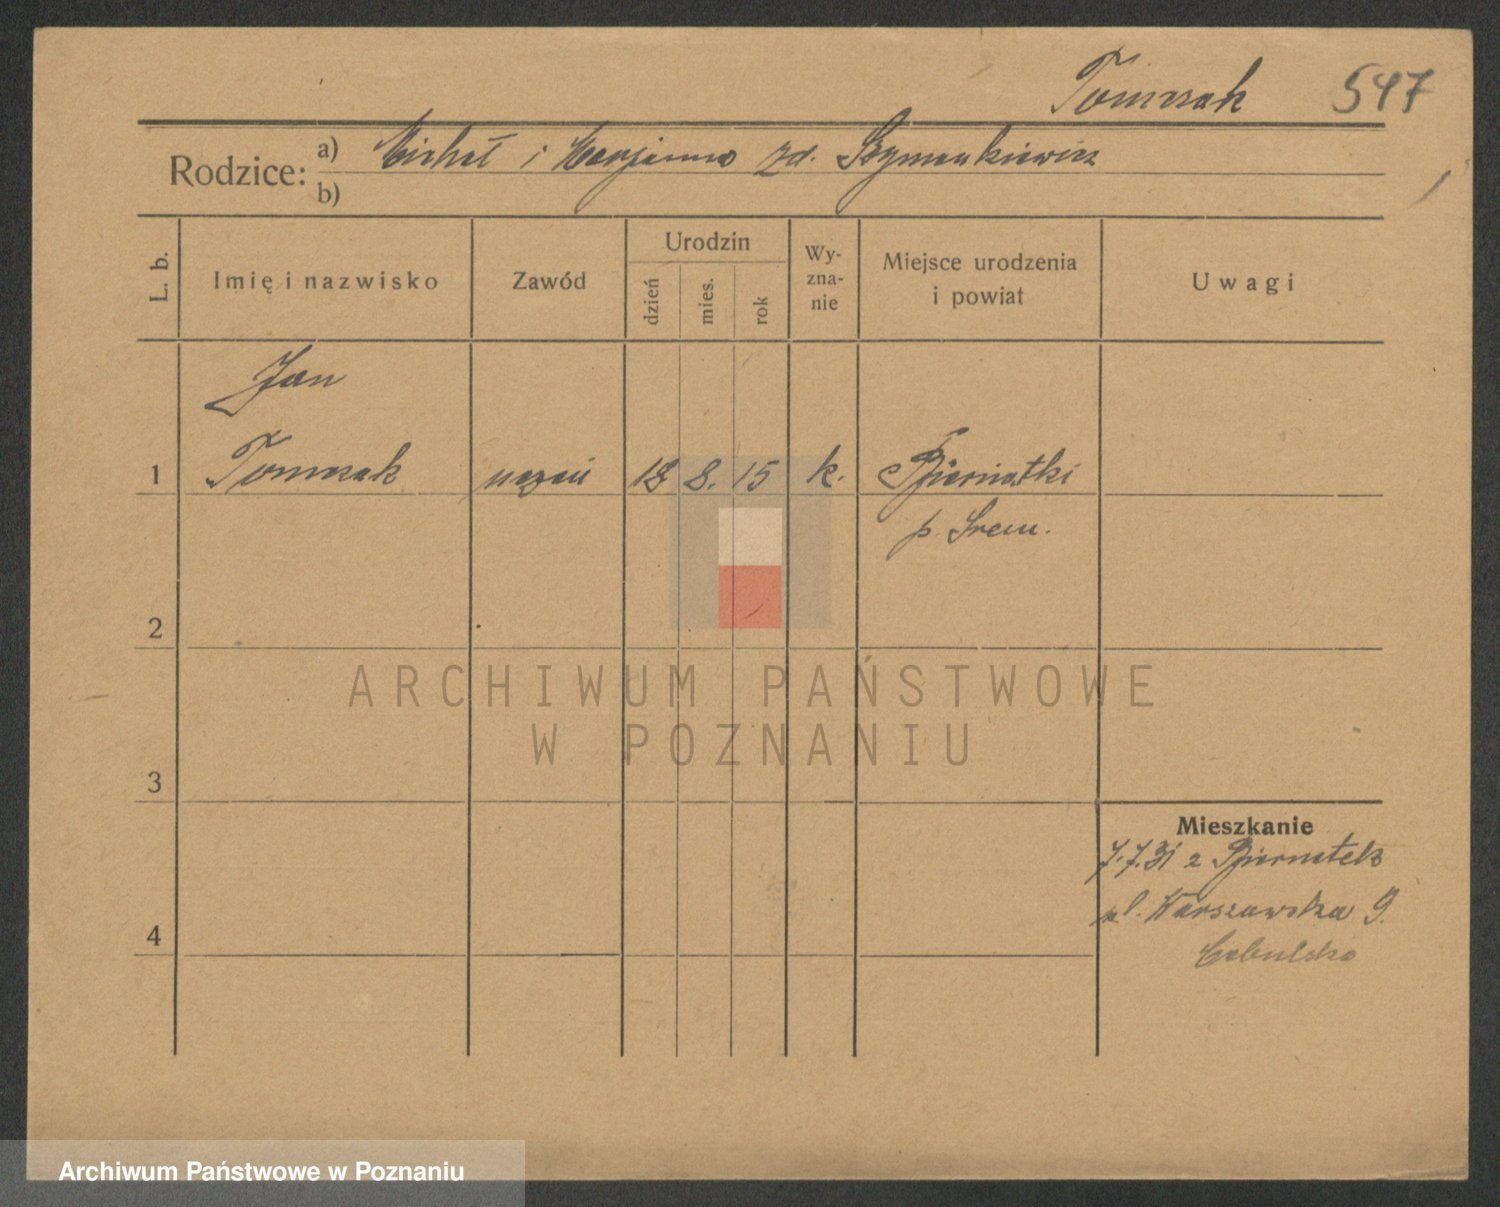 Tomczak 547
Rodzice: a) Michał i Marjanna zd. Szymankiewicz
b)
L. b.
Imię i nazwisko
Zawód
Urodzin
dzień
mies.
rok
Wy-
zna-
nie
Miejsce urodzenia
i powiat
Uwagi
Jan
1 Tomczak uczeń 18 8. 15 k. Biernatki
p. Srem.
2
3
4
Mieszkanie
7.7.31 z Biernatek
ul. Warszawska 9.
ARCHIWUM PAŃSTWOWE
W POZNANIU
Archiwum Państwowe w Poznaniu